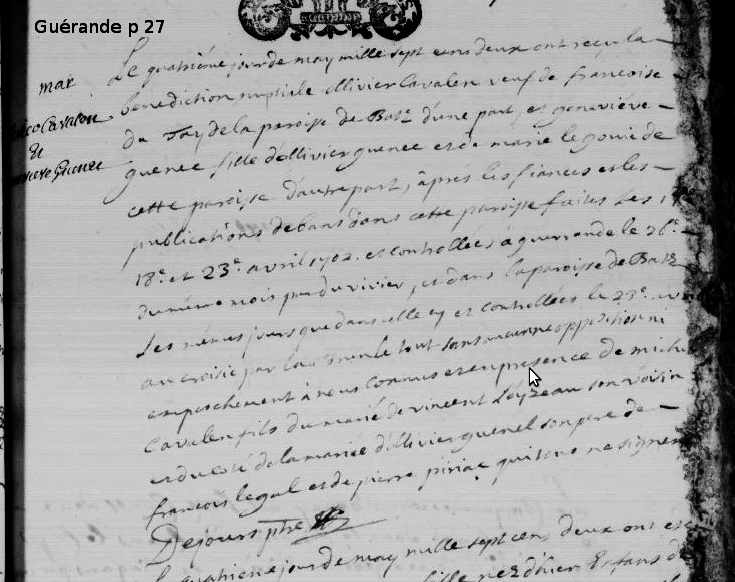 Guérande p 27
Le quatriéme jour de may mille sept cens deux ont reçu la
mar
benediction nuptiale ollivier Cavalen veuf de francoise
Cavalen
du Fay de la paroisse de Batz d'une part, et geneviéve
Et
guenee fille d'ollivier guenee et de marie le gouic de
cette paroisse d'autre part, aprés les fiances et les
publications de bans dans cette paroisse faites les
18e et 23e avril 1702. et controllées à guerrande le 26e
du même mois par duvivier, et dans la paroisse de Batz
les mêmes jours que dans elle cy et controllées le 23e
au croisic par le tout sans aucune opposition ni
empeschement à nous connus et en presence de
Cavalen fils du marié de vincent Loyseau son voisin
et du coté de la mariée d'ollivier guenel son pere de
francois legal et de pierre piriac qui tous ne signent
Dejours ptre
Le quatriéme jour de may mille sept cens deux ont